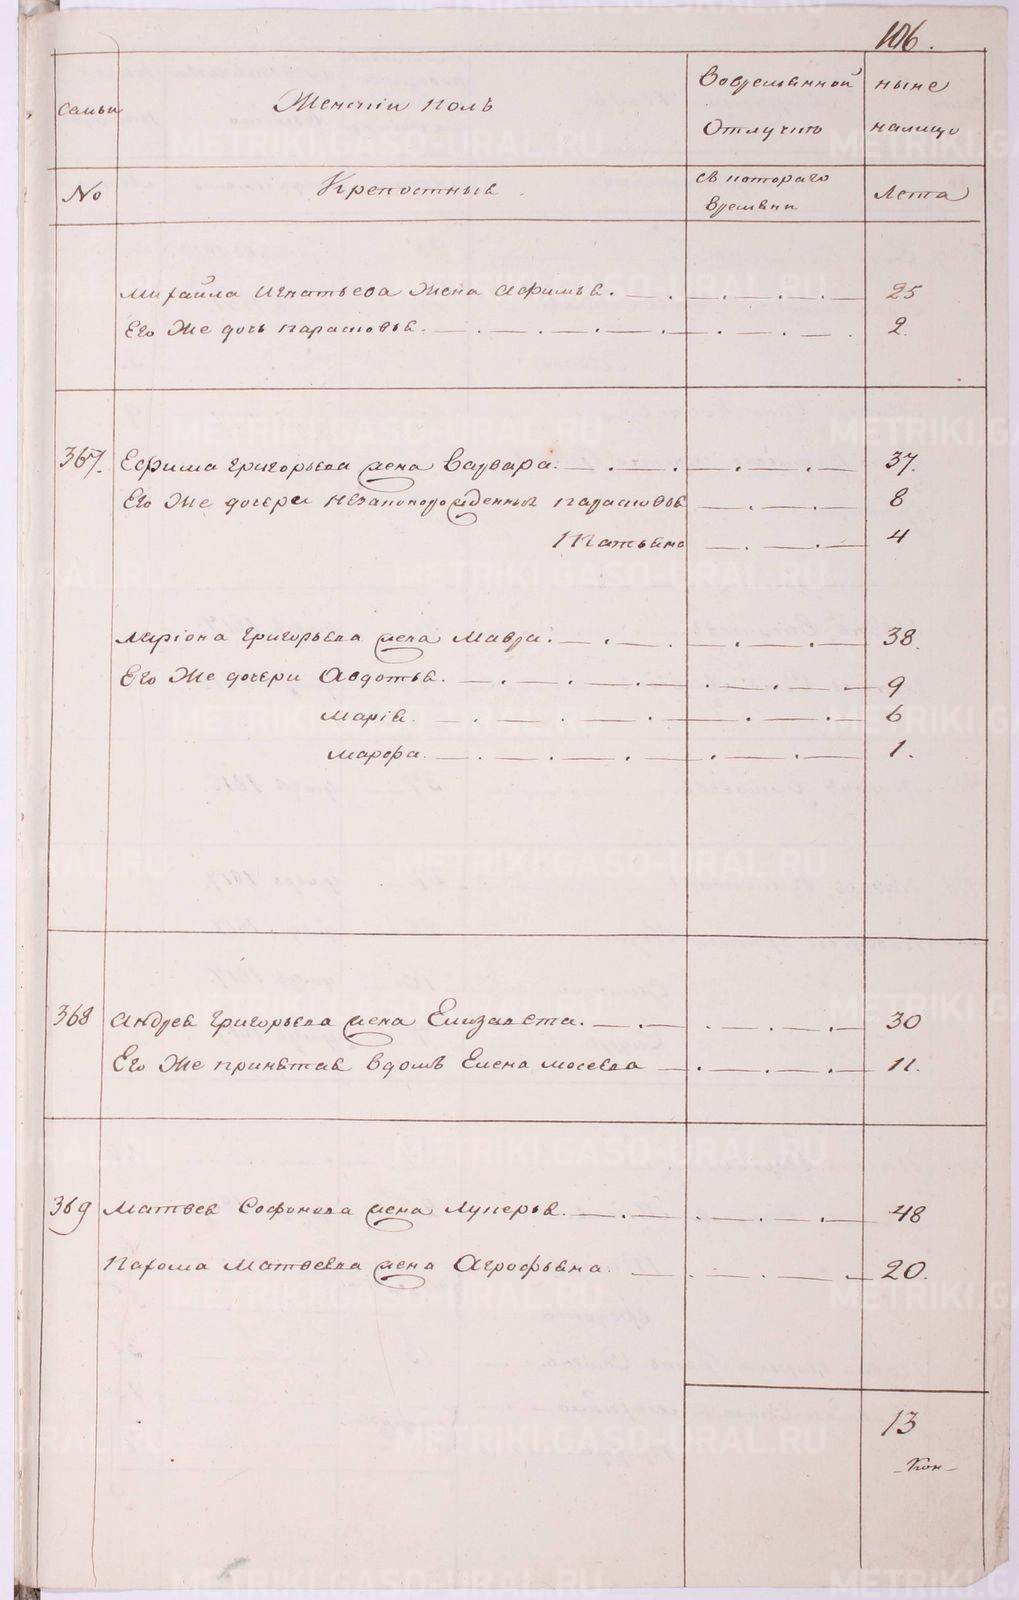 106.
семьи
Женскіи полъ
Вовременной
Отлучке
ныне
налицо
No
Крепостныя
съ котораго
времени
Лета
Михайла Игнатьева Жена Афимья. 25
Его Же дочь парасковья. 2.
367. Ефима григорьева жена Варвара. 37.
Его Же дочери незаконорожденныя парасковья 8
Татьяна 4
Ларіона григорьева жена Мавра. 38.
Его Же дочери Авдотья. 9
Марія. 6
Марфа. 1.
368 Андрея григорьева жена Елизавета. 30
Его Же принятая вдомъ Елена мосеева 11.
369 Матвея Софонова жена Лукерья. 48
Пахома Матвеева жена Агрофьена. 20.
13
METRIKI.GASO-URAL.RU